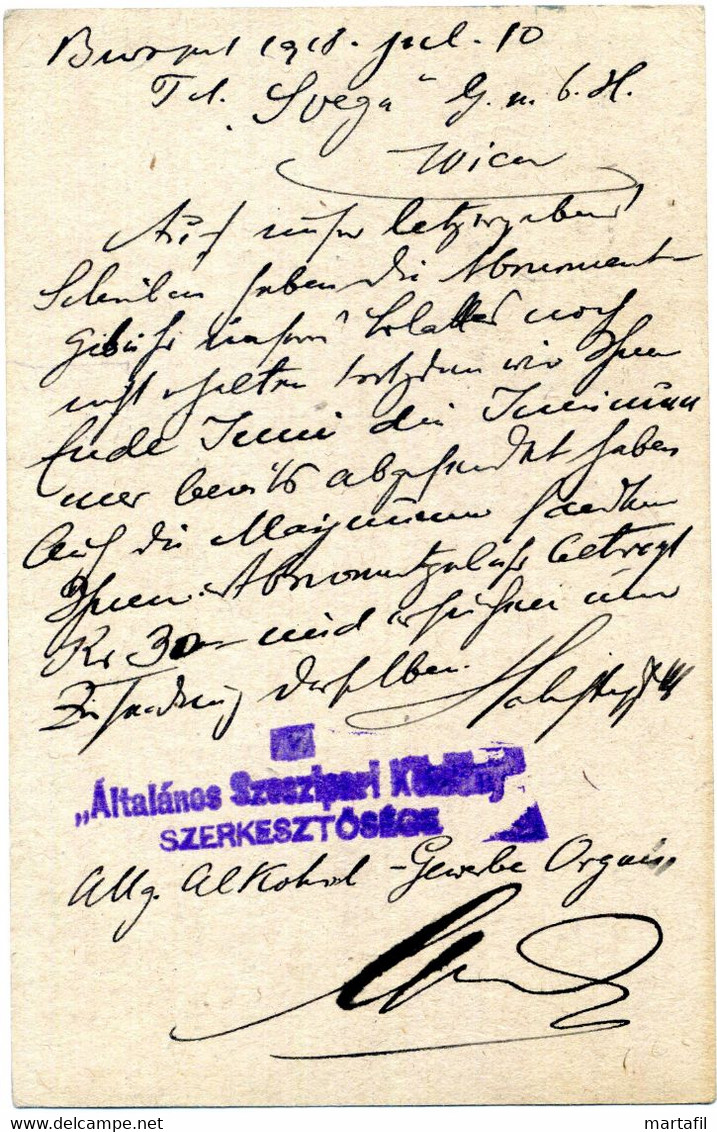 Budapest 1918. Jul. 10
Tit. "Svega" G. m. b. H.
Wien
Auf unser
Schreiben haben die Abonnement-
Gebühr unseres Blattes noch
nicht erhalten trotzdem wir Ihnen
Ende Juni die Juninum
mer bereits abgesendet haben
Auf die Mainummer sandten
Ihnen. Abonnementgebühr beträgt
Kr 30– und ersuchen um
Zusendung derselben.
„Általános Szeszipari Közlöny"
SZERKESZTŐSÉGE
Allg. Alkohol-Gewerbe Organ
martafil